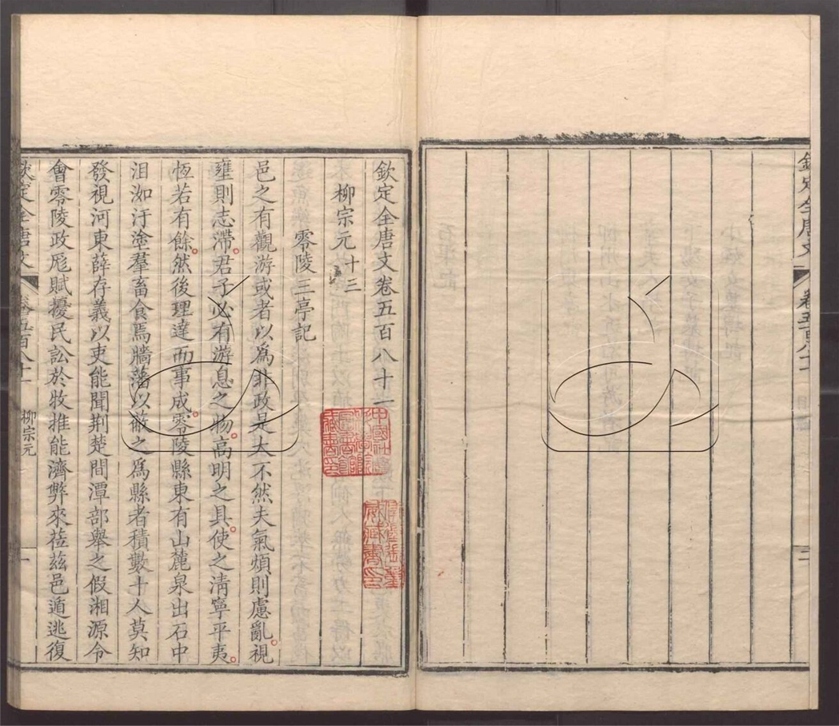 欽定全唐文
欽定全唐文卷五百八十一
柳宗元十三
零陵三亭記
邑之有觀游或者以為非政是大不然夫氣煩則慮亂視
壅則志滯君子必有游息之物高明之具使之清寧平夷
恆若有餘然後理達而事成零陵縣東有山麓泉出石中
沮洳汙塗羣畜食焉牆藩以蔽之為縣者積數十人莫知
發視河東薛存義以吏能聞荆楚間潭部舉之假湘源令
會零陵政厖賦擾民訟於牧推能濟弊來莅茲邑遁逃復
欽定全唐文 卷五百八十一 柳宗元 一